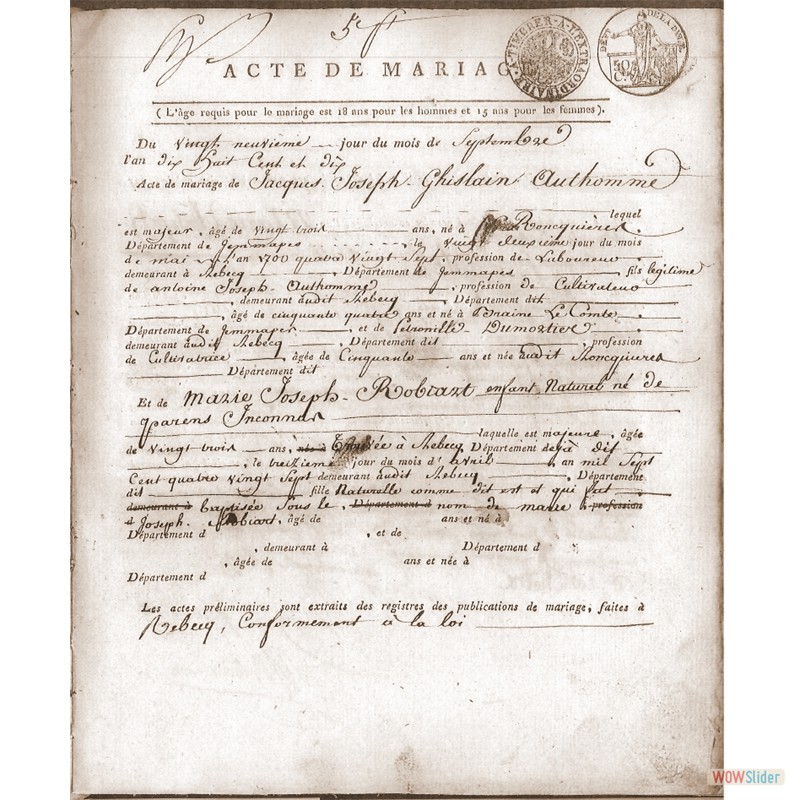 5
ACTE DE MARIAG
A TIMBRER A L'EXTRAORDINAIRE
DE LA DETTE
50 C.
(L'âge requis pour le mariage est 18 ans pour les hommes et 15 ans pour les femmes).
Du vingt neuvième jour du mois de Septembre
l'an dix huit Cent et dix
Acte de mariage de Jacques Joseph Ghislain Authomme
lequel
est majeur, âgé de vingt trois ans, né à Roncquières
Département de Jemmapes le vingt deuxieme jour du mois
de mai l'an 1700 quatre vingt Sept, profession de Laboureur
demeurant à Rebecq, Département de Jemmapes fils légitime
de antoine Joseph Authomme, profession de Cultivateur
, demeurant audit Rebecq, Département dit
, âgé de cinquante quatre ans et né à Braine Le Comte
Département de Jemmapes, et de Petronille Dumortier
demeurant audit Rebecq, Département dit, profession
de Cultivatrice, âgée de Cinquante ans et née audit Roncquieres
Département dit
Et de Marie Joseph Robiart enfant Naturel né de
parens Inconnus
laquelle est majeure, âgée
de vingt trois ans, née Trouvée à Rebecq Département déjà dit
, le treizieme jour du mois d'avril, an mil Sept
Cent quatre vingt Sept demeurant audit Rebecq, Département
dit fille Naturelle comme dit est et qui fut
demeurant à baptisée sous le, Département d nom de marie, profession
d Joseph Robiart, âgé de ans et né à
Département d , et de
, demeurant à Département d
, âgée de ans et née à
Département d
Les actes préliminaires sont extraits des registres des publications de mariage, faites à
Rebecq, Conformement à la loi
WOWSlider